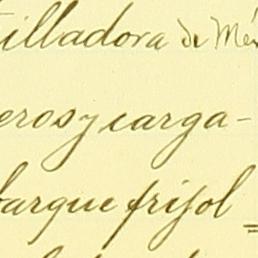 illadora de Mé
eros y carga-
barque frijol